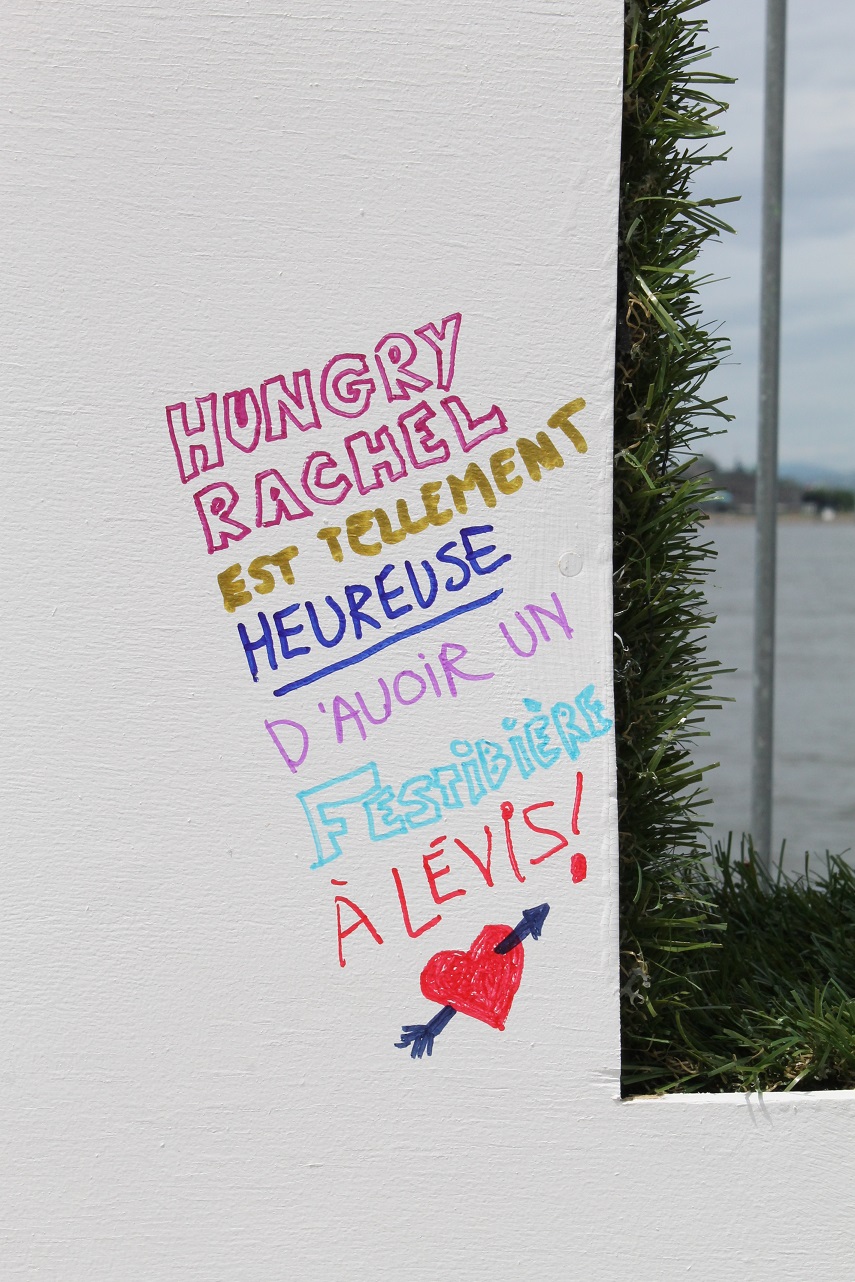 HUNGRY
RACHEL
EST TELLEMENT
HEUREUSE
D'AVOIR UN
FESTIBIÈRE
À LÉVIS!